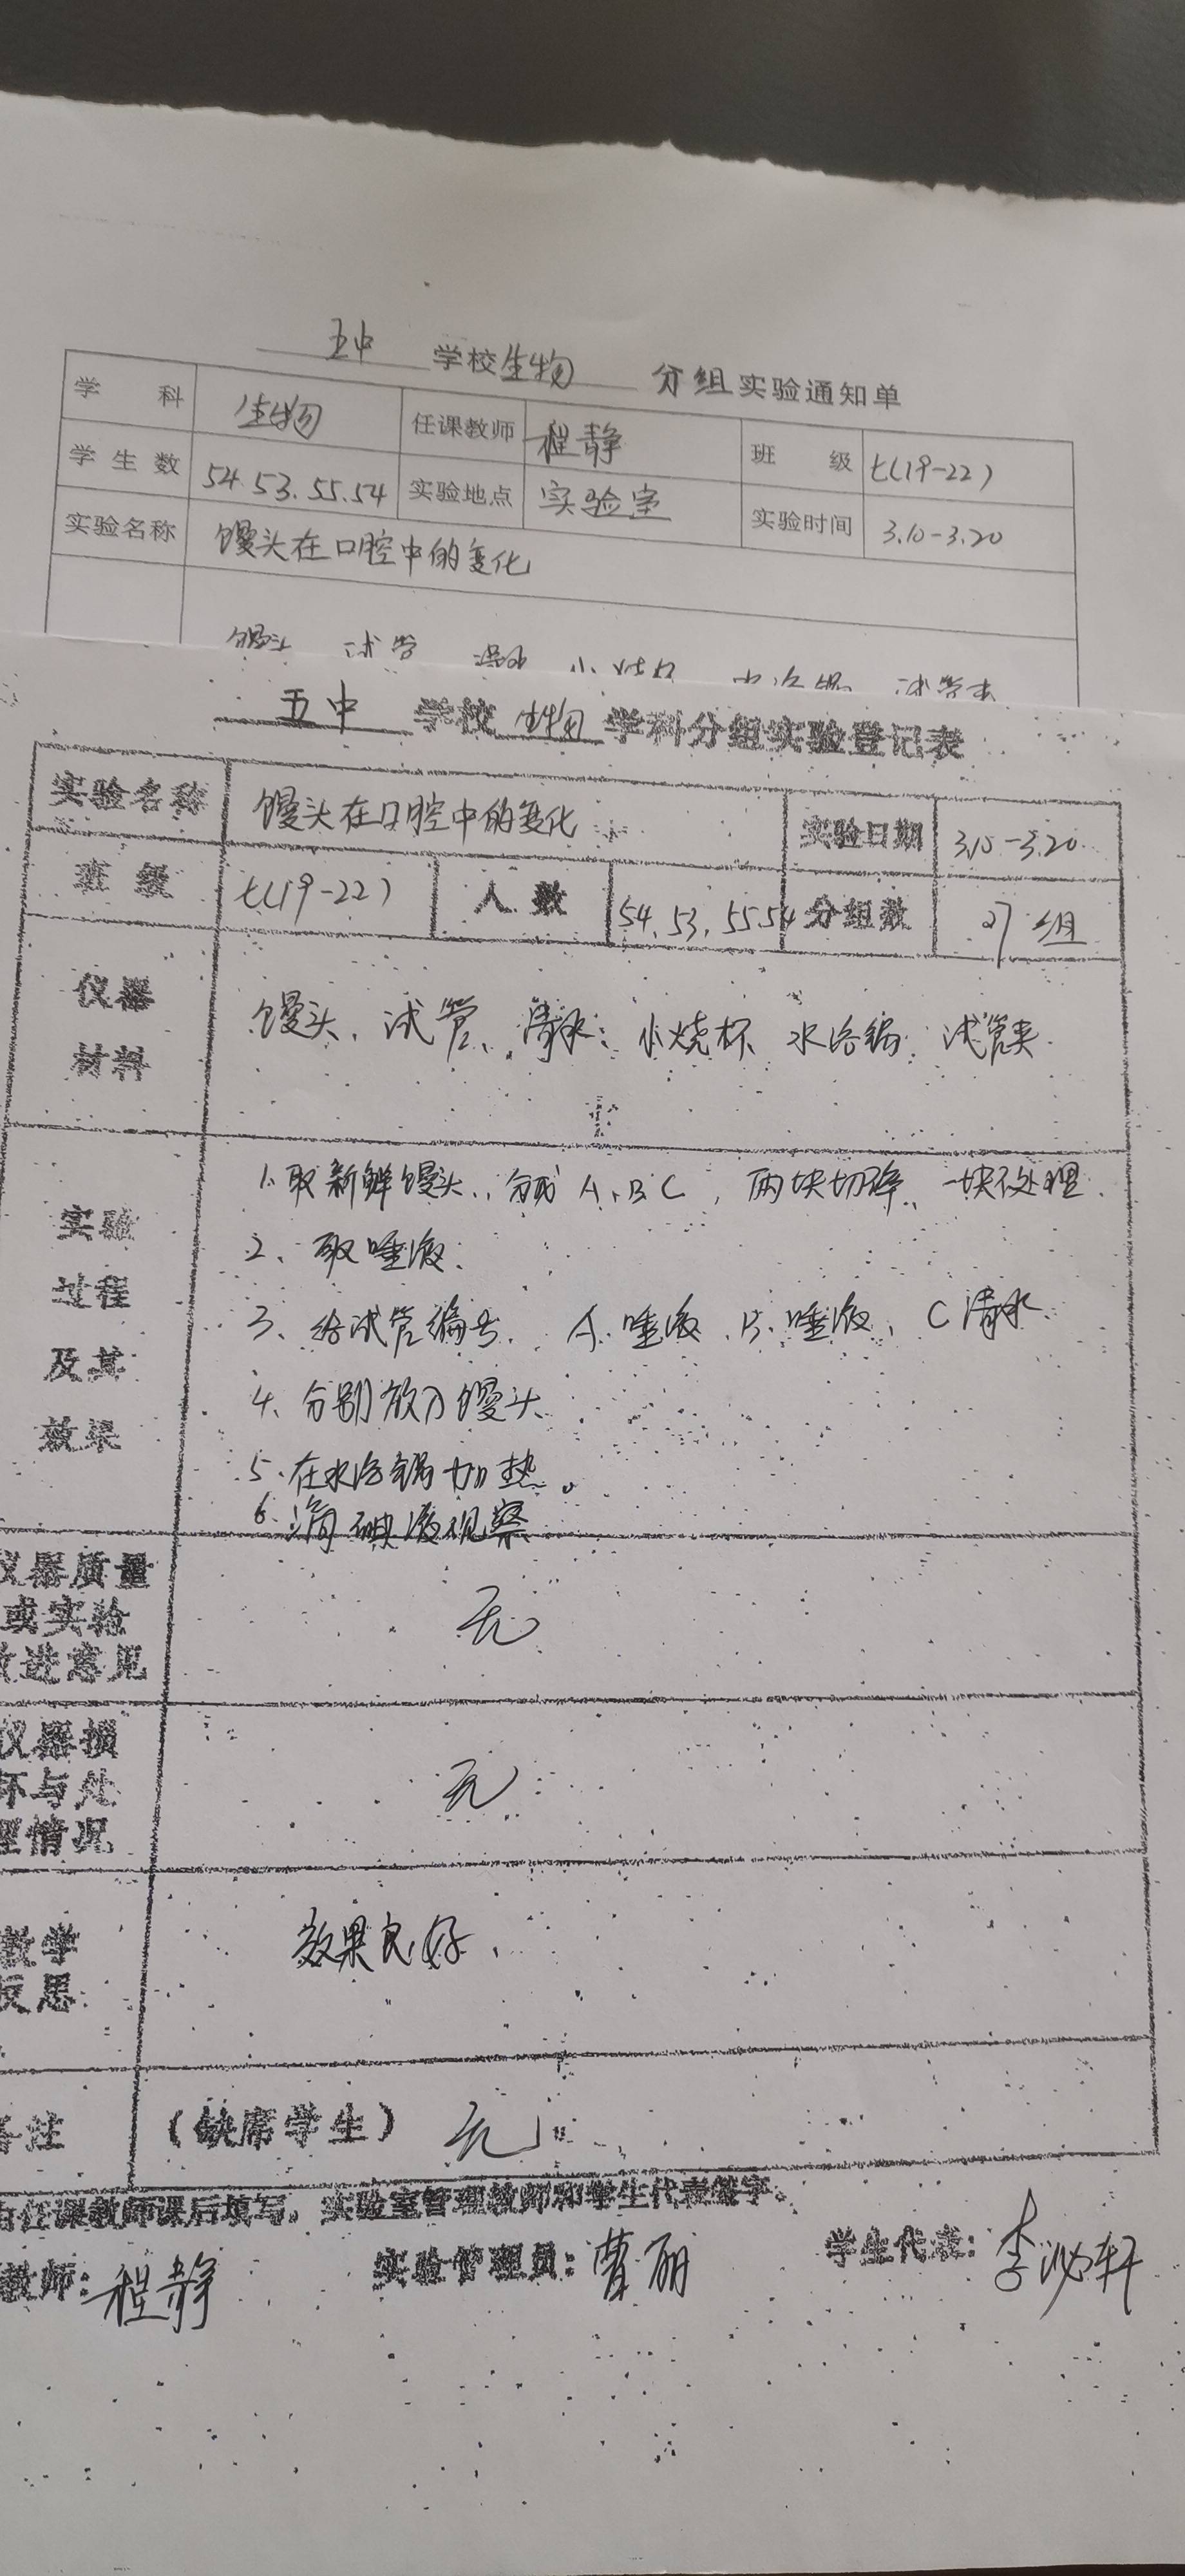 五中 学校 生物 分组实验通知单
学 科 生物 任课教师 程静 班 级 七(19-22)
学生数 54.53.55.54 实验地点 实验室 实验时间 3.10-3.20
实验名称 馒头在口腔中的变化
馒头 试管 清水 小烧杯 水浴锅 试管夹
五中 学校 生物 学科分组实验登记表
实验名称 馒头在口腔中的变化 实验日期 3.10-3.20
班 级 七(19-22) 人 数 54.53.55.54 分组数 27组
仪器
材料
馒头、试管、清水、小烧杯 水浴锅 试管夹
实验
过程
及其
效果
1.取新鲜馒头,分成A、B、C,两块切碎、一块不处理.
2、取唾液.
3、给试管编号. A.唾液、B.唾液、C清水
4、分别放入馒头
5.在水浴锅加热。
6.滴碘液观察
仪器质量
或实验
改进意见
无
仪器损
坏与处
理情况
无
教学
反思
效果良好.
备注 (缺席学生) 无
由任课教师课后填写,实验室管理教师和学生代表签字。
教师: 程静 实验管理员: 曹丽 学生代表: 李泌轩